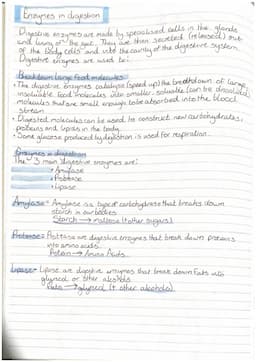 Enzymes in digestion
Digestive enzymes are made by specialised cells in the glands
and lining of the gut. They are then secreted (released) out
of the body cells and into the cavity of the digestive system.
Digestive enzymes are used to:
Breakdown large food molecules
• The digestive enzymes catalyse (speed up) the breakdown of large,
insoluble food molecules into smaller soluble (can be dissolved)
molecules that are small enough to be absorbed into the blood
stream.
• Digested molecules can be used to construct new carbohydrates,
proteins and lipids in the body.
• Some glucose produced by digestion is used for respiration.
Enzymes in digestion
The 3 main digestive enzymes are:
• Amylase
• Protease
• Lipase
Amylase: Amylase is a type of carbohydrase that breaks down
starch in our bodies
Starch → maltose (+ other sugars)
Protease: Protease are digestive enzymes that break down proteins
into amino acids.
Protein → Amino Acids
Lipase: Lipase are digestive enzymes that break down fats into
glycerol or other alcohols
Fats → glycerol (+ other alcohols)